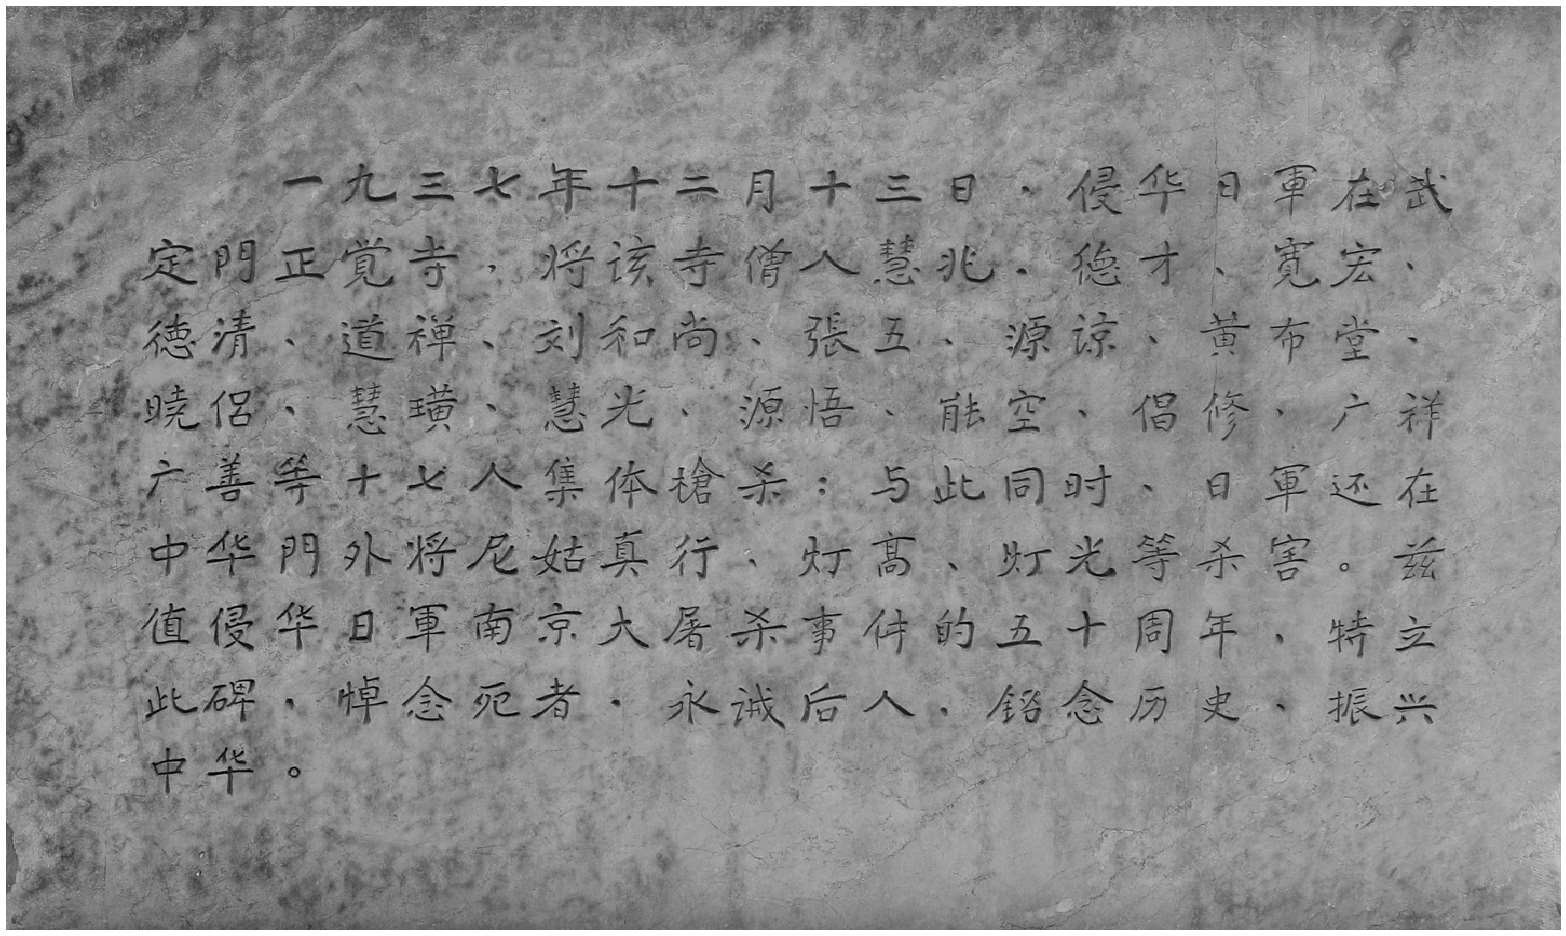 一九三七年十二月十三日、侵华日軍在武
定門正覚寺、将该寺僧人慧兆、德才、寛宏、
德清、道禅、刘和尚、張五、源谅、黄布堂、
曉侣、慧璜、慧光、源悟、能空、倡修、广祥
广善等十七人集体槍杀；与此同时、日軍还在
中华門外将尼姑真行、灯高、灯光等杀害。兹
值侵华日軍南京大屠杀事件的五十周年、特立
此碑、悼念死者、永诫后人、铭念历史、振兴
中华。